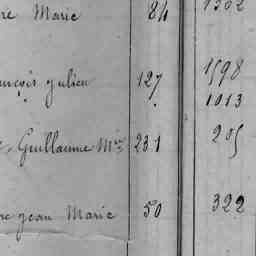 re Marie 84 1302
ançois Julien 127 1598
1013
Guillaume Mie 231 205
re jean Marie 50 322